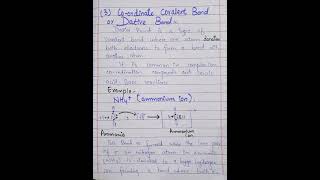 (3) Co-ordinate Covalent Bond
or Dative Bond:-
Dative Bond is a type of
covalent bond where one atom donates
both electrons to form a bond with
another atom.
It is common in complexes
co-ordination compounds and Lewis
acid-Base reactions.
Example:-
NH4+ (ammonium ion).
Ammonia
Ammonium ion
This Bond is formed when the lone pair
of on nitrogen atom in ammonia
(NH3) is donated to a hydrogen
ion forming a bond where both